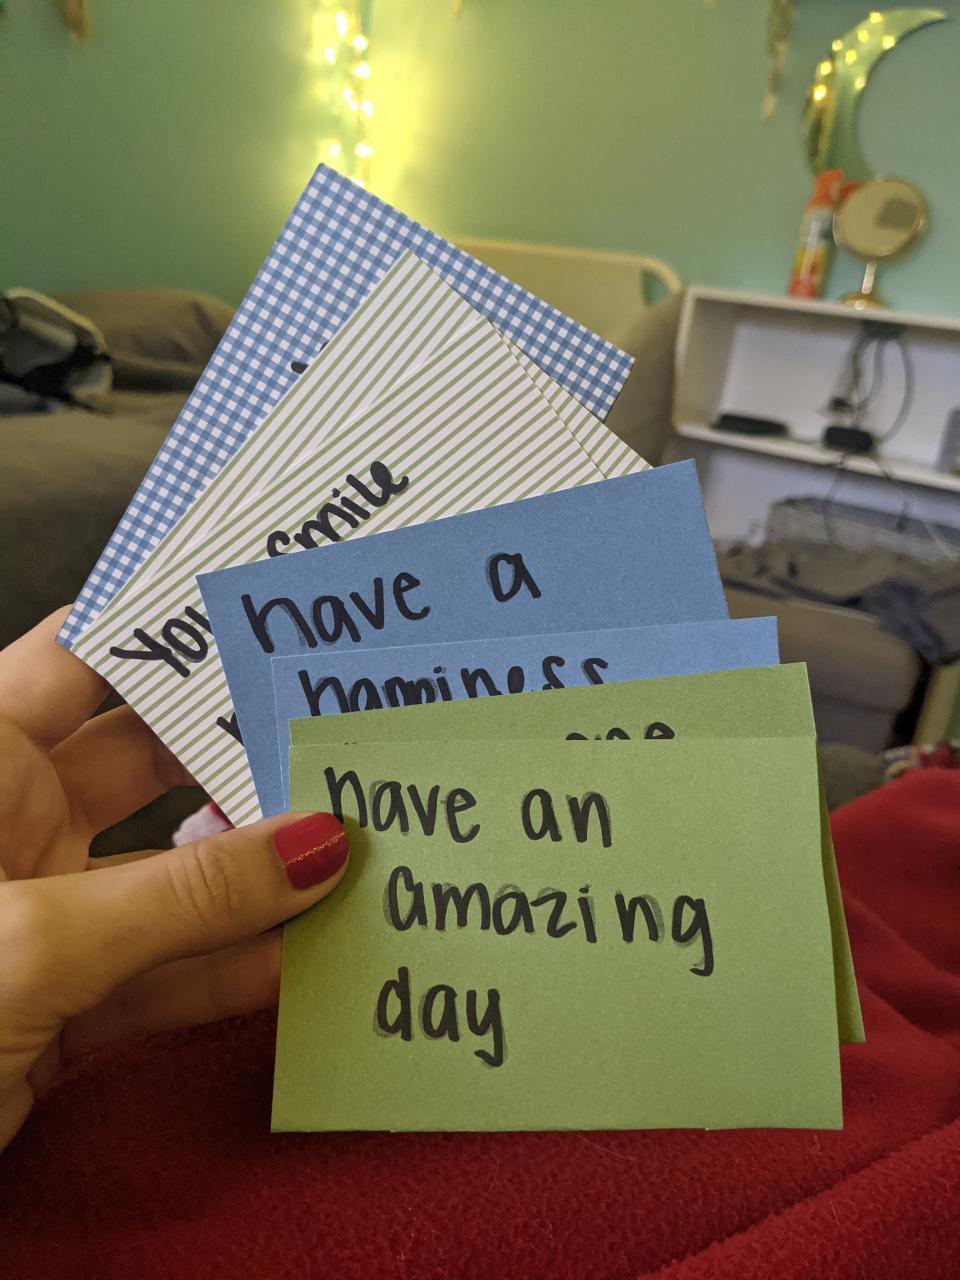 You
smile
have a
happiness
one
have an
amazing
day